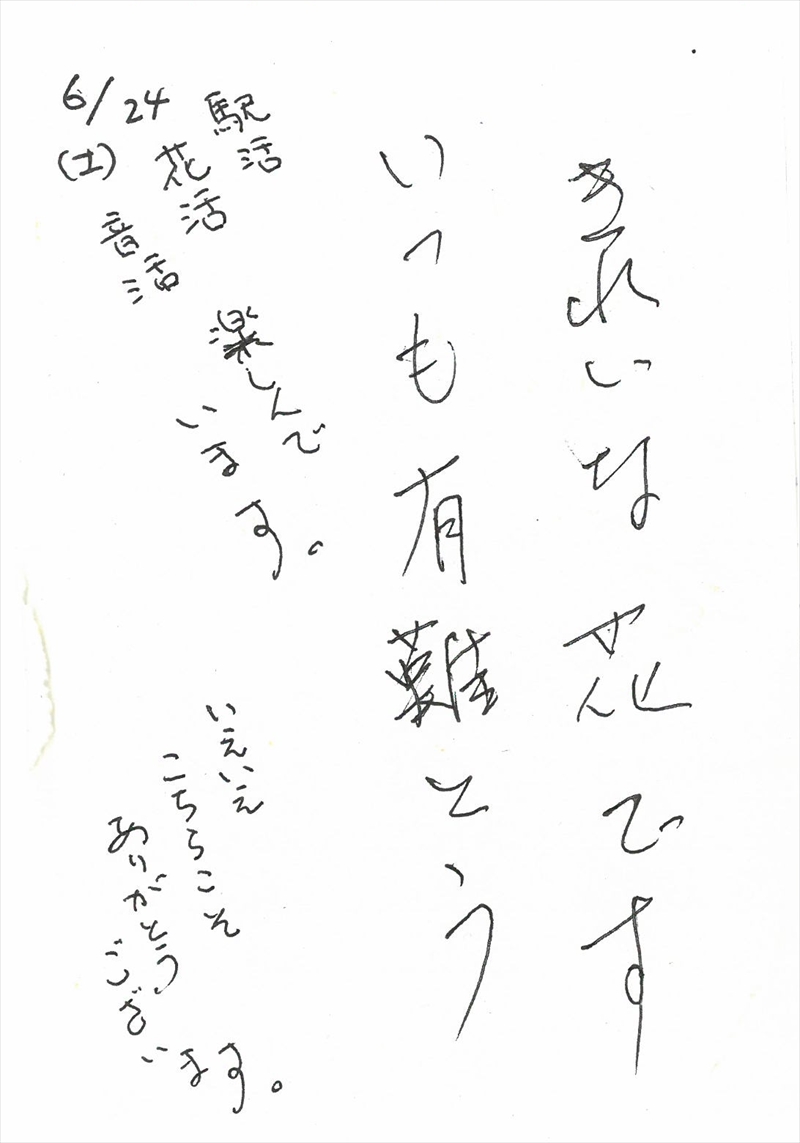 きれいな花です
いつも有難とう
6/24
(土)
駅活
花活
音活
楽しんで
います。
いえいえ
こちらこそ
ありがとう
ございます。